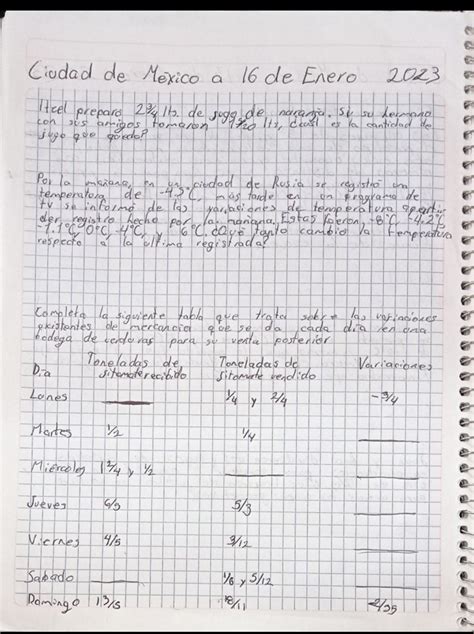 Ciudad de México a 16 de Enero 2023
Itcel preparo 2 3/4 lts. de jugo de naranja. Si su hermano
con sus amigos tomaron 1 9/20 lts, cual es la cantidad de
jugo que quedo?
Por la mañana, en una ciudad de Rusia se registró una
temperatura de -4.5°C, mas tarde en un programa de
tv se informo de las variaciones de temperatura apartir
der registro hecho por la mañana. Estas fueron, -8°C, -4.2°C
-1.1°C, 0°C, -4°C, y 6°C. ¿Que tanto cambio la temperatura
respecto a la ultima registrada?
Completa la siguiente tabla que trata sobre las variaciones
existantes de mercancia que se da cada dia en una
bodega de verduras para su venta posterior
Dia Toneladas de jitomate recibido Toneladas de jitomate vendido Variaciones
Lunes 1/4 y 2/4 -3/4
Martes 1/2 1/4
Miércoles 1 2/4 y 1/2
Jueves 6/9 5/3
Viernes 4/5 3/12
Sabado 1/8 y 5/12
Domingo 1 3/5 /11